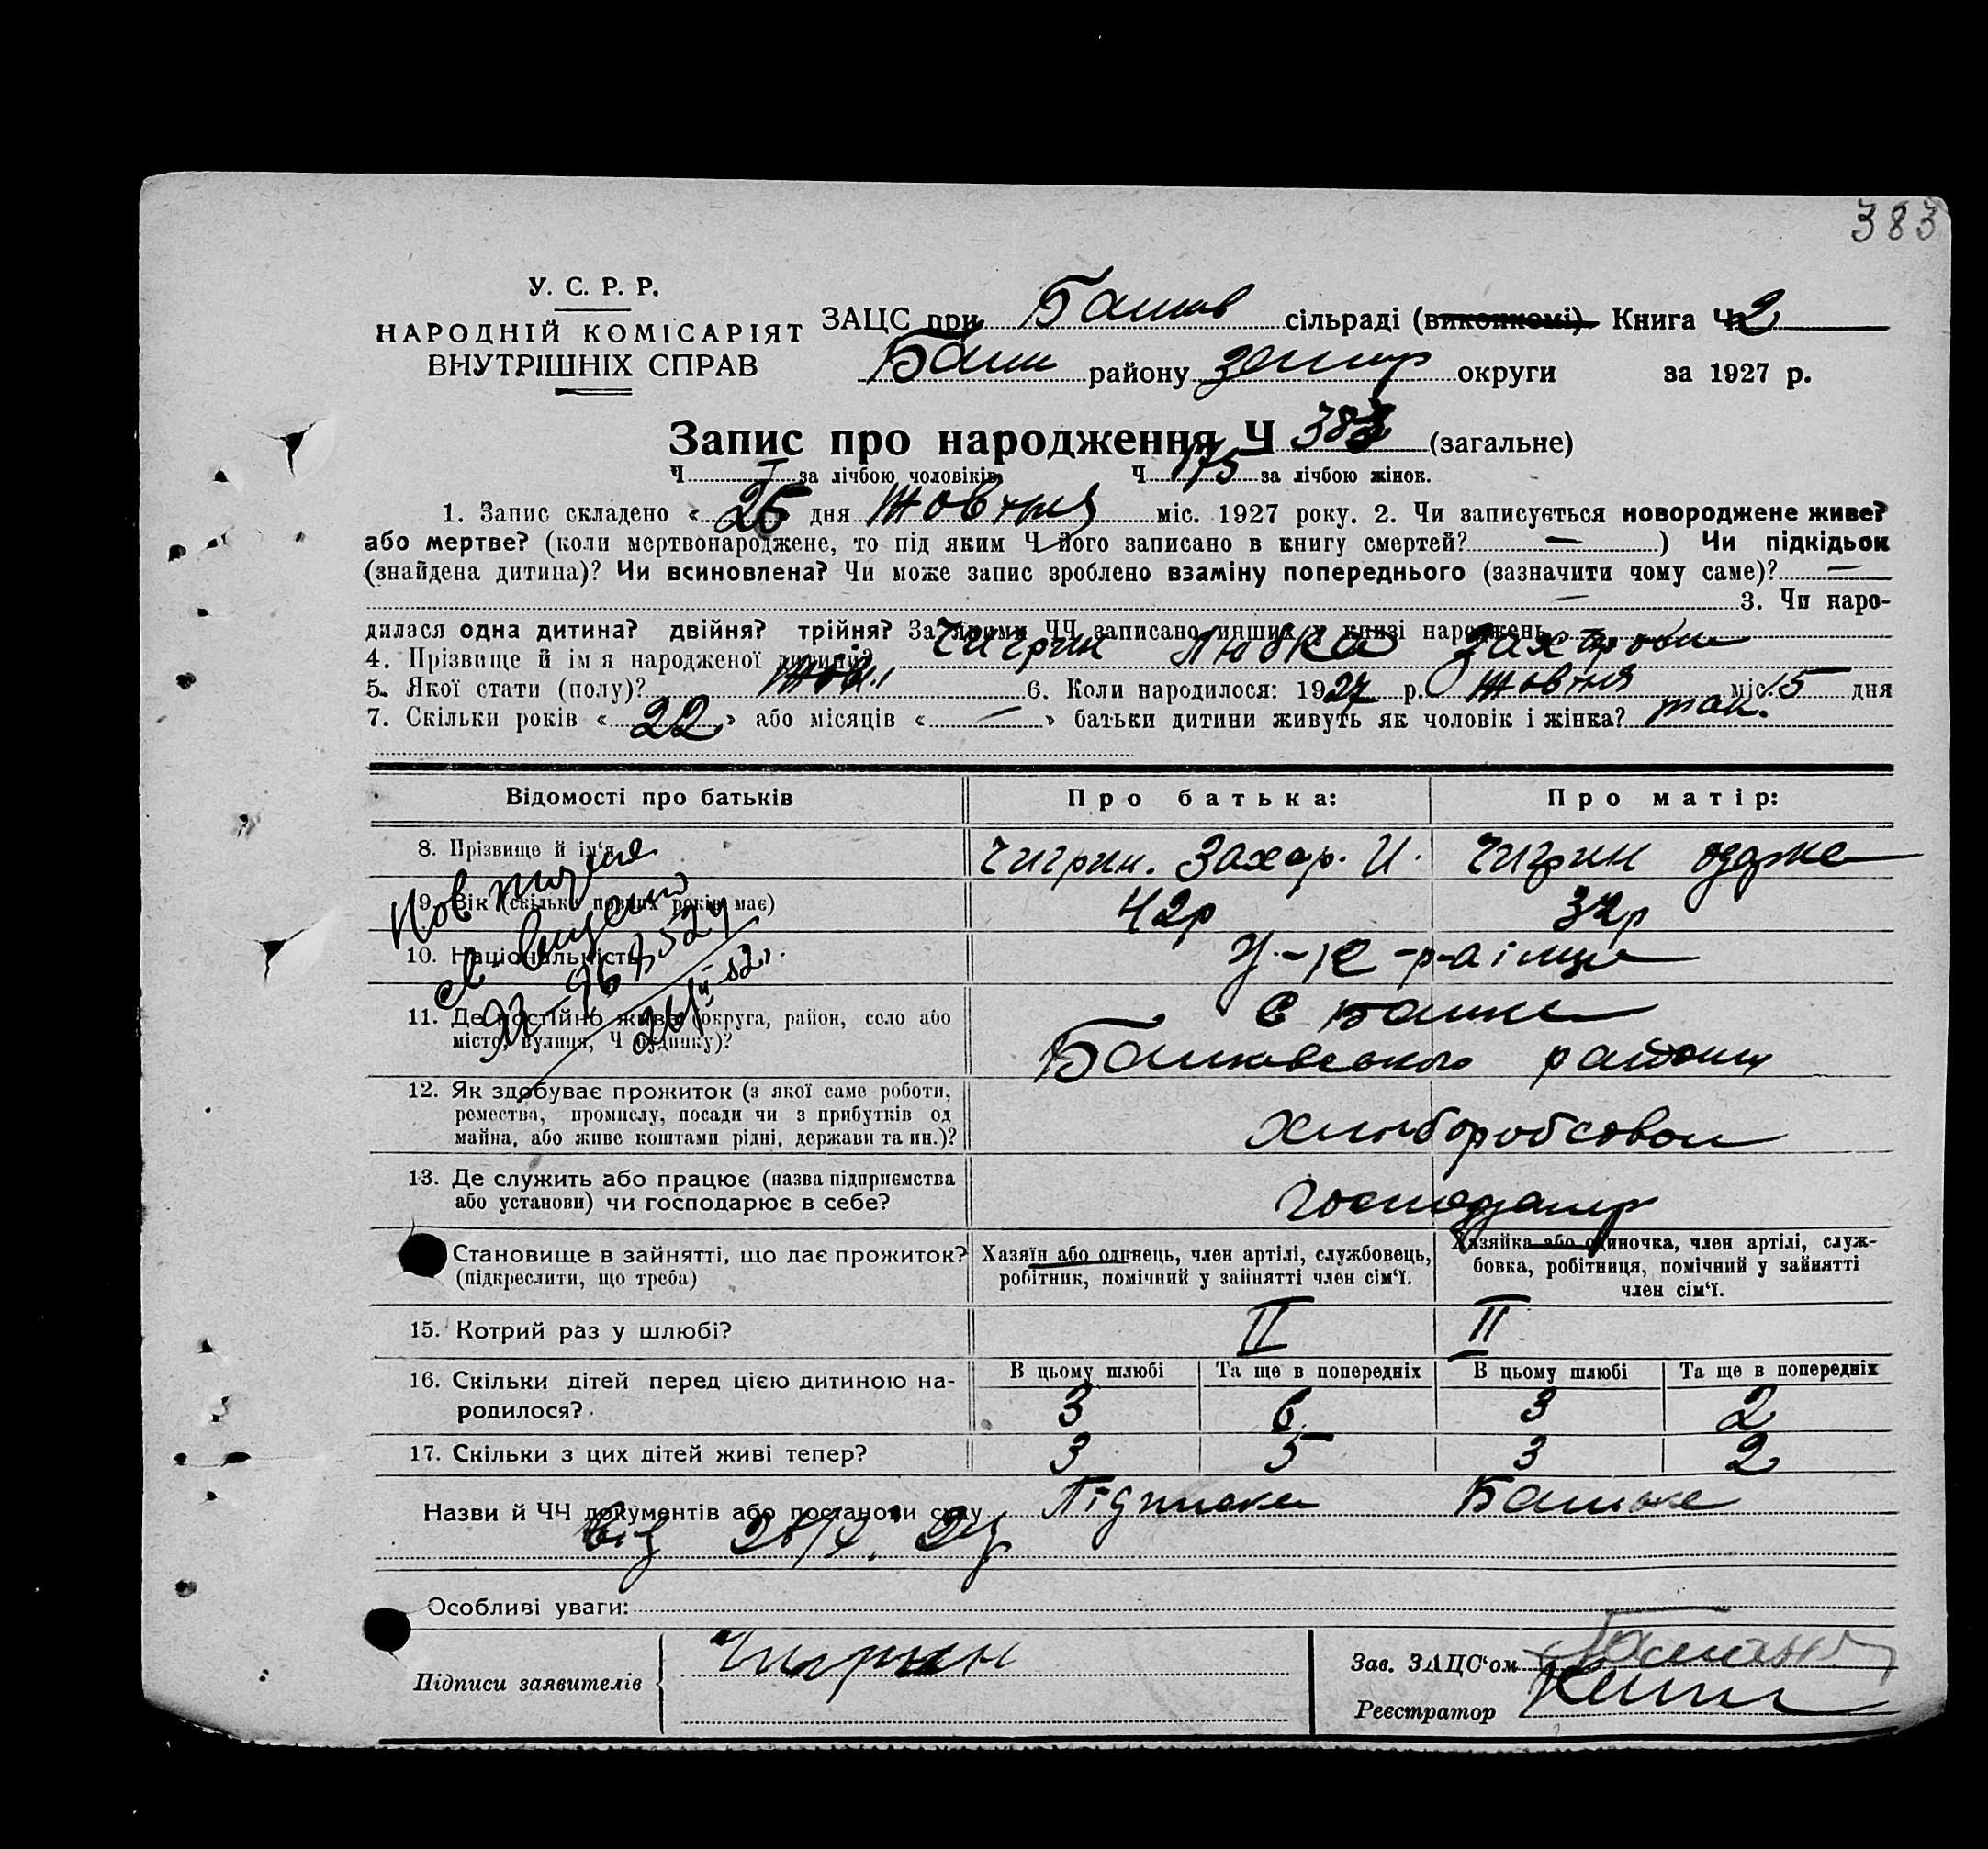 383
У. С. Р. Р.
НАРОДНІЙ КОМІСАРІЯТ
ВНУТРІШНІХ СПРАВ
ЗАЦС при Башов сільраді (виконкомі) Книга Ч 2
Баш району округи за 1927 р.
Запис про народження Ч 383 (загальне)
Ч за лічбою чоловіків. Ч 175 за лічбою жінок.
1. Запис складено « 26 дня жовтня міс. 1927 року. 2. Чи записується новороджене живе?
або мертве? (коли мертвонароджене, то під яким Ч його записано в книгу смертей? — ) Чи підкідьок
(знайдена дитина)? Чи всиновлена? Чи може запис зроблено взаміну попереднього (зазначити чому саме)? —
— 3. Чи наро-
дилася одна дитина? двійня? трійня? За якими ЧЧ записано инших у книзі народжень
4. Прізвище й ім я народженої дитини? Чигрин Любка
5. Якої стати (полу)? 6. Коли народилося: 1927 р. жовтня міс. 15 дня
7. Скільки років « 22 » або місяців « — » батьки дитини живуть як чоловік і жінка? так.
Відомості про батьків Про батька: Про матір:
8. Прізвище й ім'я Чигрин. Захар. И. Чигрин
9. Вік (скільки повних років має) 42р 32р
10. Національність У-к-р-аінці
11. Де постійно живе (округа, район, село або
місто, вулиця, Ч будинку)?
с Башке
району
12. Як здобуває прожиток (з якої саме роботи,
ремества, промислу, посади чи з прибутків од
майна, або живе коштами рідні, держави та ин.)?
13. Де служить або працює (назва підприємства
або установи) чи господарює в себе?
Становище в зайнятті, що дає прожиток?
(підкреслити, що треба)
Хазяїн або одинець, член артілі, службовець,
робітник, помічний у зайнятті член сім'ї.
Хазяйка або одиночка, член артілі, служ-
бовка, робітниця, помічний у зайнятті
член сім'ї.
15. Котрий раз у шлюбі? II II
16. Скільки дітей перед цією дитиною на-
родилося?
В цьому шлюбі Та ще в попередніх В цьому шлюбі Та ще в попередніх
3 6 3 2
17. Скільки з цих дітей живі тепер? 3 5 3 2
Назви й ЧЧ документів або постанови суду Підписка
від 26/X. 27
Особливі уваги:
Підписи заявителів Чигрин
Зав. ЗАЦС'ом
Реєстратор